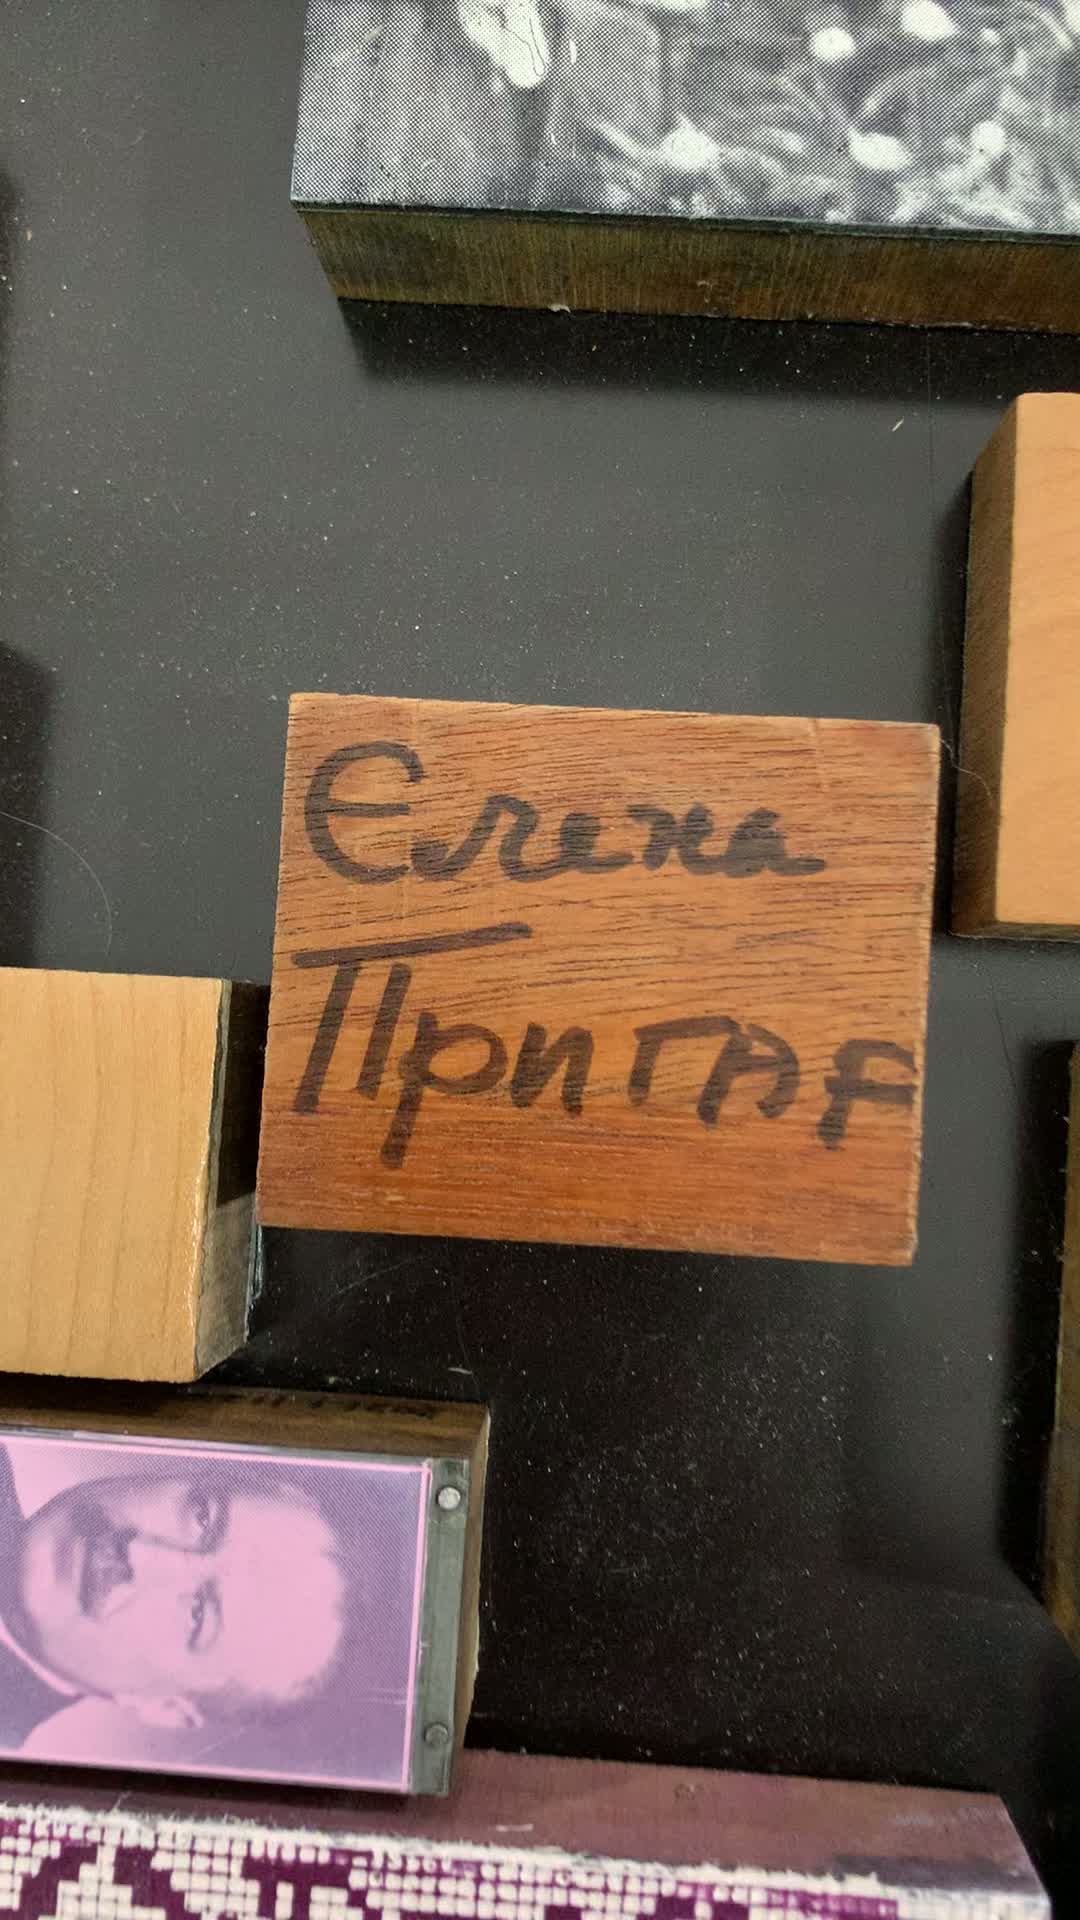 Єлена
Пригар